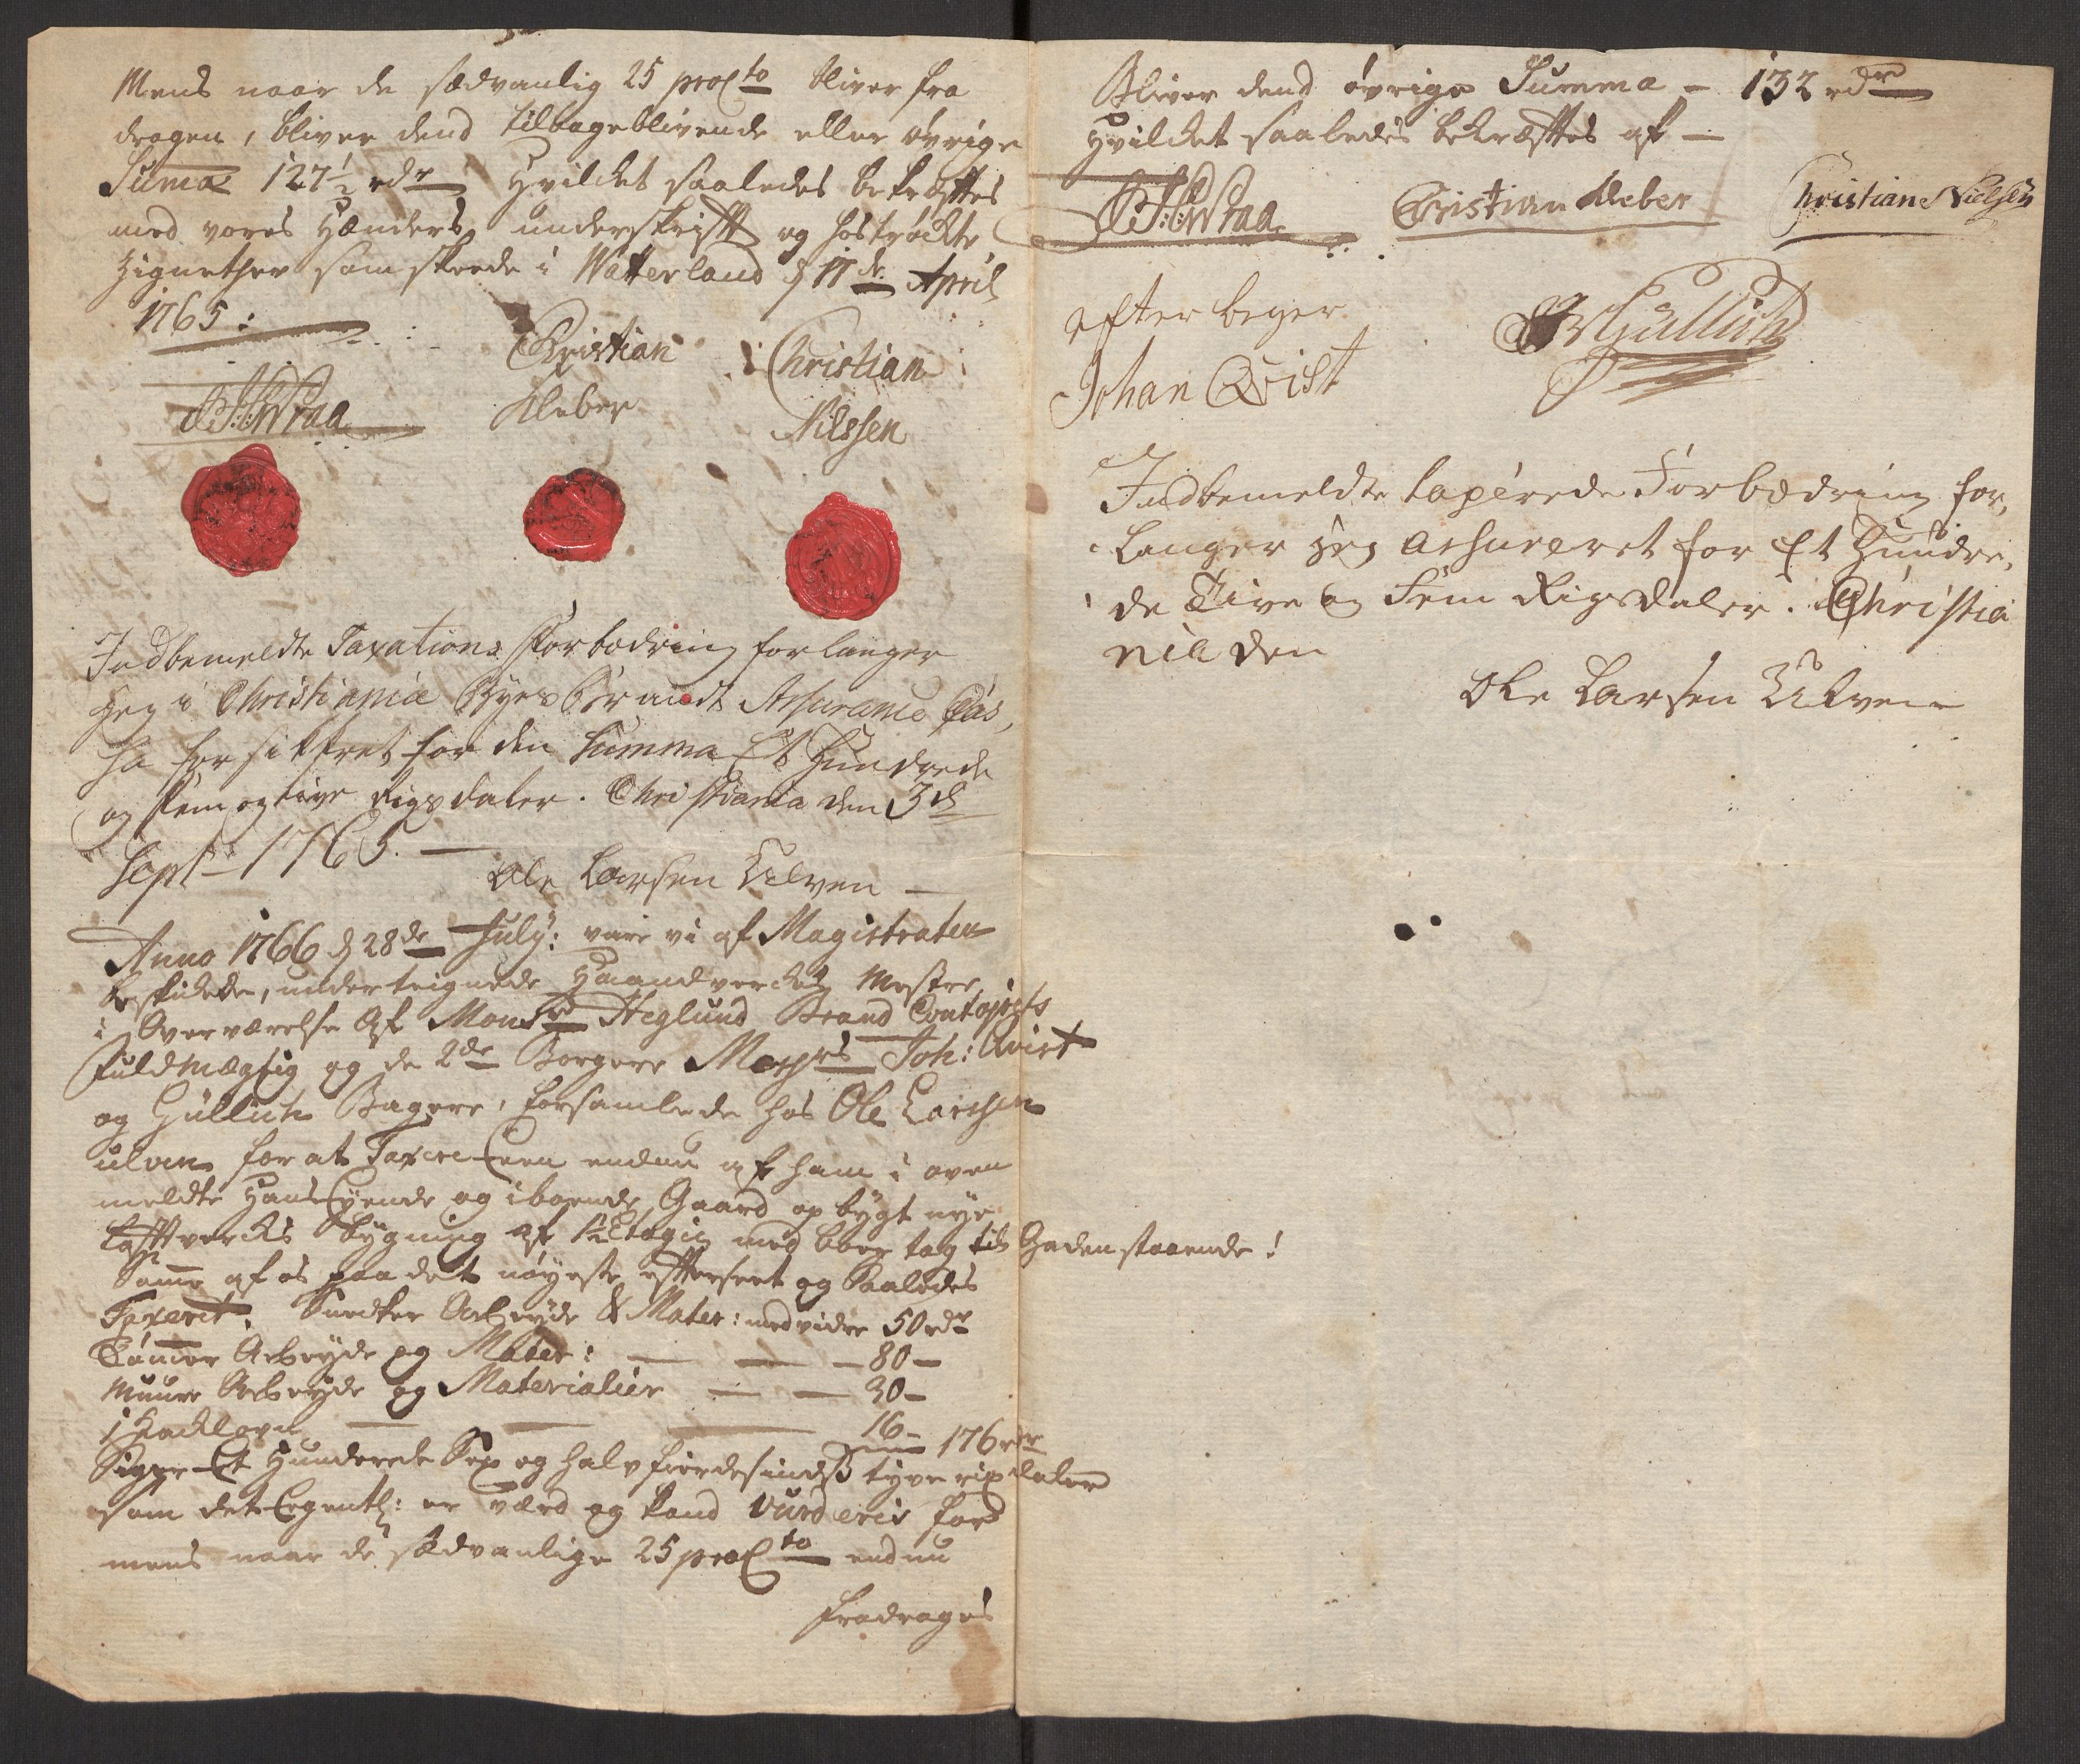 Mens naar de sædvanlig 25 proCto bliver fra
dragen, bliver dend tilbageblivende eller øvrige
Suma 127½ rdr Hvilcket saaledes bekræfftes
med vores Hænders underskrifft og hostrøckte
Zignether som skeede i Watterland d 11de April
1765:
Christian Kleber
Christian Nilssen
Indbemeldte Taxations Forbedring forlanger
Jeg i Christiania Byes Brandt Assurance Cas,
sa forsikkret for den Summa Et Hundrede
og fem og tive Rigsdaler. Christiania den 3d
Sept 1765.
Ole Larsen Ulven
Anno 1766 d 28de July: vare vi af Magistraten
beskickede, underteignede Haandvercks Mestre,
i Overværelse af Monsr Heglund Brand Contoirets
Fuldmægtig og de 2de Borgere Monsrs Joh: Qvist
og Gullich Bagere, forsamlede hos Ole Larssen
Ulven for at Taxere Een endnu af ham i oven
meldte Hans Eyende og iboende Gaard op bygt nye
Laffteverchs Bygning af 1½ Etagie med boer tag til Gaden staaende!
Samme af os paa det nøyeste effterseet og Saaledes
Taxerit. Snedker Arbeyde & Mater: med vider 50 rdr
Tømmer Arbeyde og Mater: — — — 80 —
Muurer Arbeyde og Materialier — — 30 —
1 Kackloven — — — 16 —
Sum 176 rdr
Siger Et Hunderede Sex og halvfierdesindstyve rixdaler
som det Egentl: er værd og kand vurderis for
mens naar de sædvanlige 25 proCto endnu
fradrages
Bliver dend øvrige Summa — 132 rdr
Hvilcket saaledes bekræfftes af —
Christian Kleber
Christian Nielsen
efter beger
Johan Qvist
Gullich
Indbemeldte taxerede Forbedring for,
langer Jeg assureret for Et Hundre,
de Tive og Fem Rigsdaler. Christia
nia den
Ole Larsen Ulven